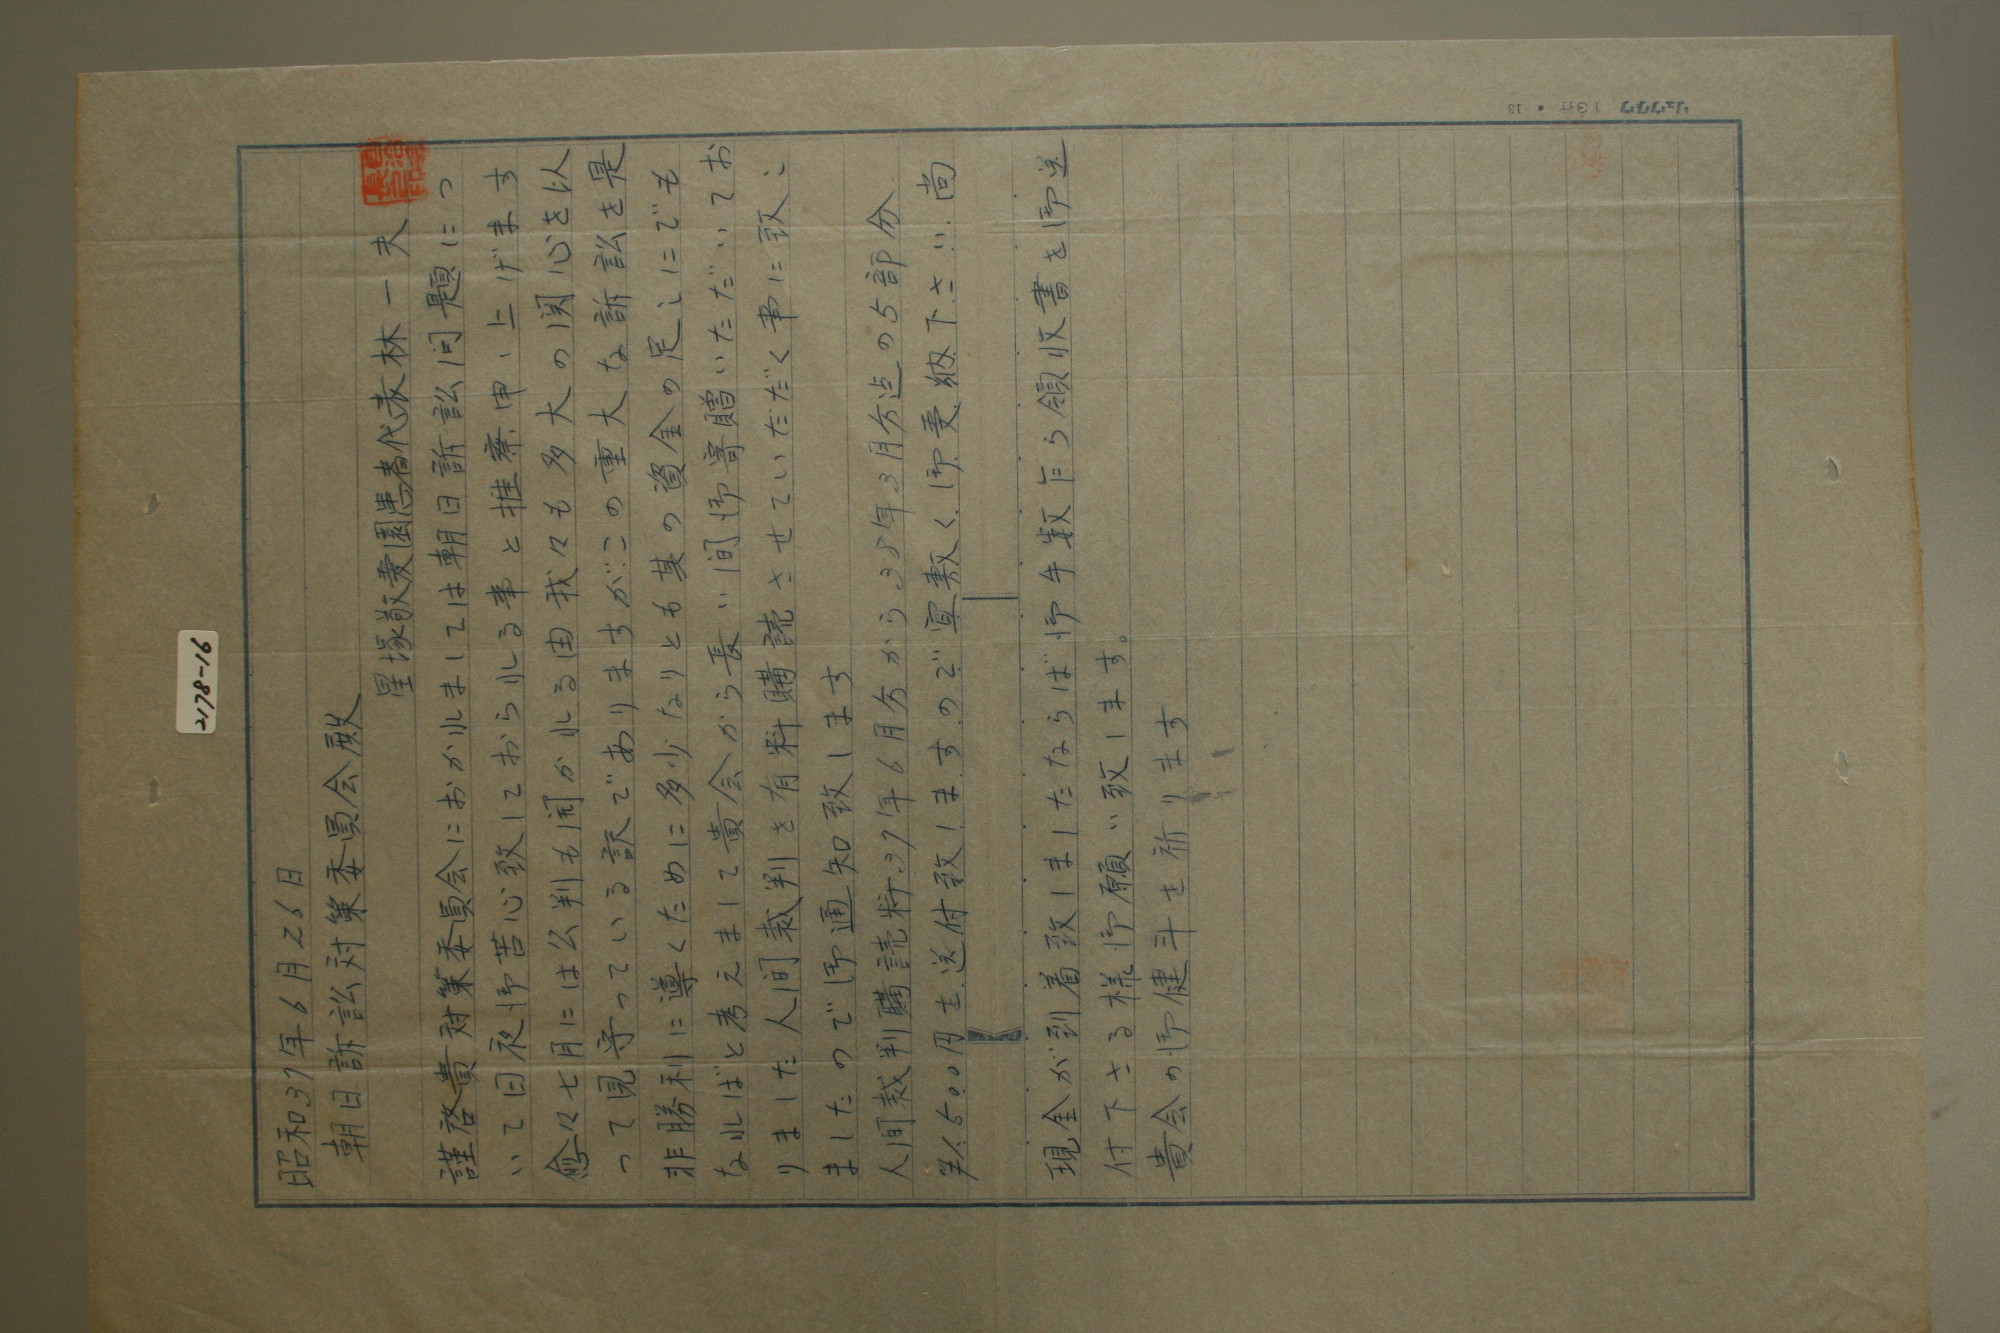 昭和37年6月26日
朝日訴訟対策委員会殿
星塚敬愛園患者代表 林一夫
謹啓貴対策委員会におかれましては朝日訴訟問題につ
いて日夜御苦心致しておられる事と推察申し上げます
愈々七月には公判も開かれる由我々も多大の関心を以
って見守っている訳でありますがこの重大な訴訟を是
非勝利に導くために多少なりとも其の資金の足しにでも
なればと考えまして貴会から長い間御寄贈いただいてお
りました人間裁判を有料購読させていただく事に致し
ましたので御通知致します
人間裁判購読料37年6月分から38年3月分迄の5部分
￥1,500円を送付致しますので宜敷く御受納下さい尚
現金が到着致しましたならば御手数乍ら領収書を御送
付下さる様御願い致します。
貴会の御健斗を祈ります
2178-16
リュウグウ 13行 • 13